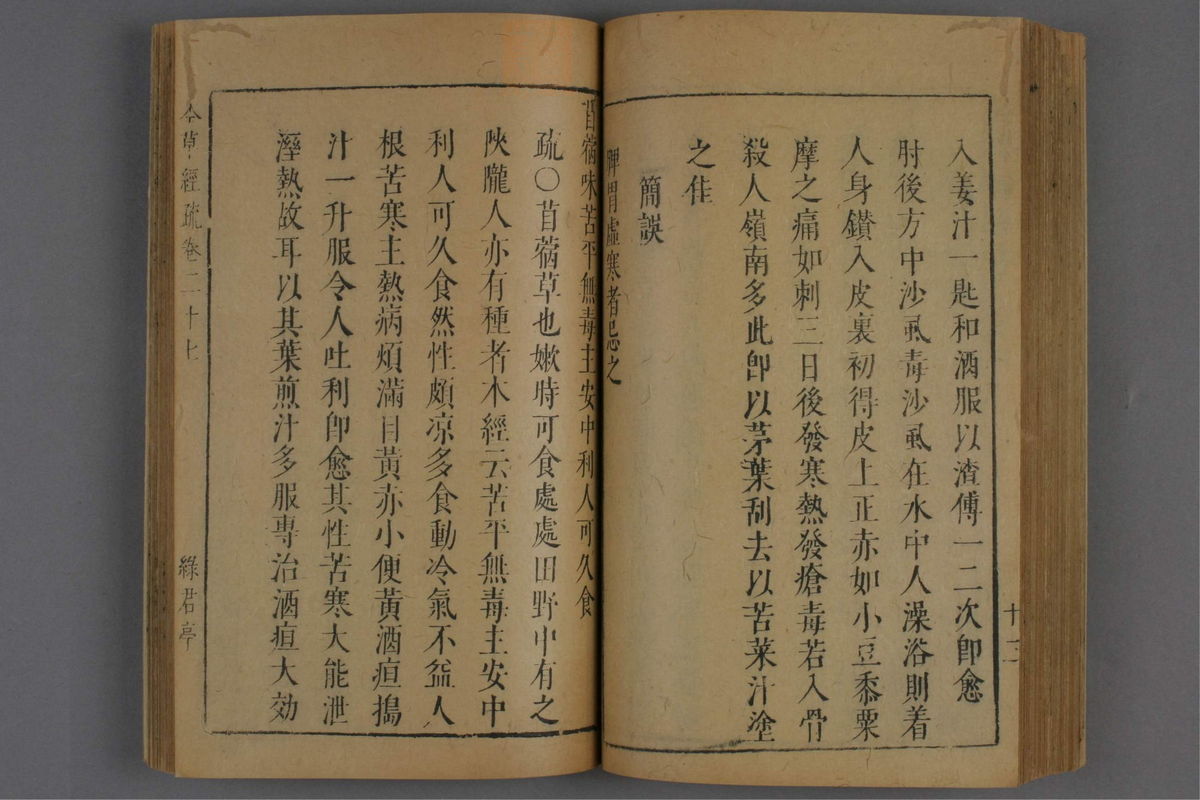 入姜汁一匙和酒服以渣傅一二次卽愈
肘後方中沙虱毒沙虱在水中人澡浴則着
人身鑚入皮裏初得皮上正赤如小豆黍粟
摩之痛如刺三日後發寒熱發瘡毒若入骨
殺人嶺南多此卽以茅葉刮去以苦菜汁塗
之佳
簡誤
脾胃虛寒者忌之
十二
苜蓿味苦平無毒主安中利人可久食
疏〇苜蓿草也嫩時可食處處田野中有之
陜隴人亦有種者木經云苦平無毒主安中
利人可久食然性頗凉多食動冷氣不益人
根苦寒主熱病煩滿目黃赤小便黃酒疸搗
汁一升服令人吐利卽愈其性苦寒大能泄
溼熱故耳以其葉煎汁多服專治酒疸大効
草經疏卷二十七
綠君亭